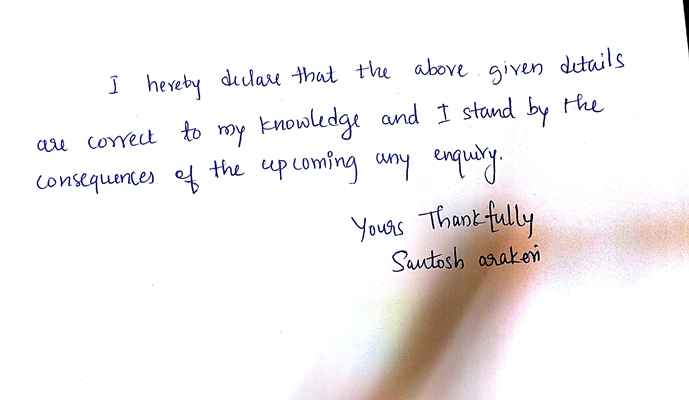 I hereby declare that the above given details
are correct to my knowledge and I stand by the
consequences of the upcoming any enquiry.
Yours Thankfully
Santosh arakeri